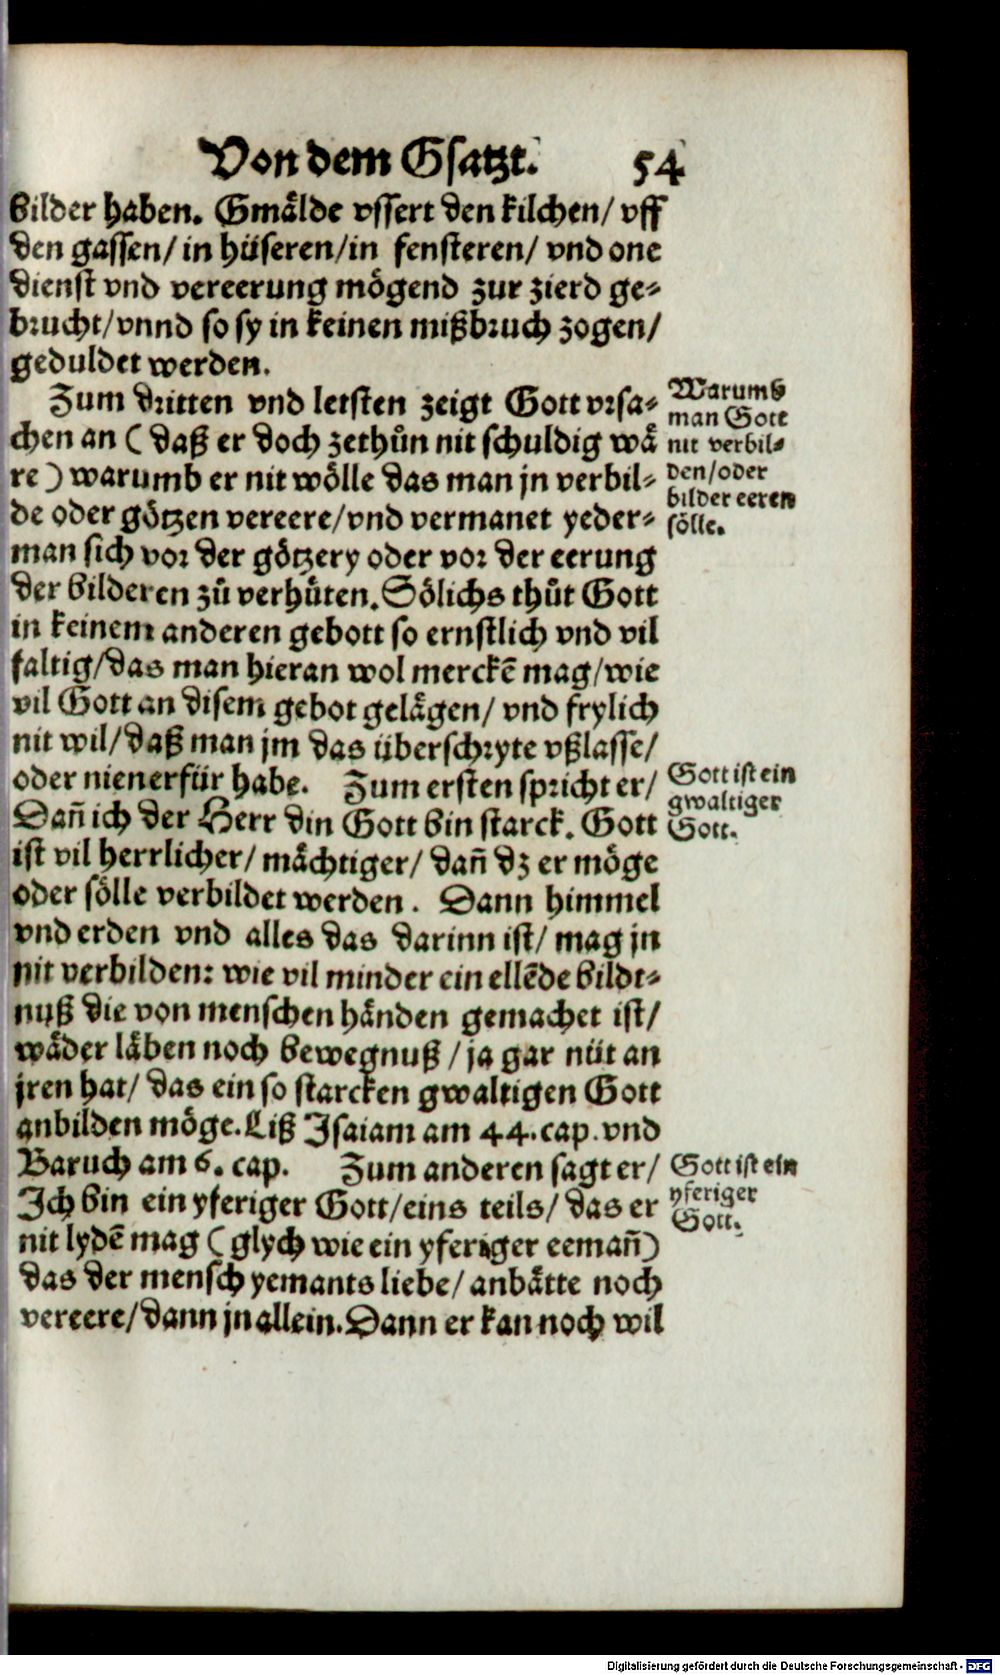 Von dem Gsatzt. 54
bilder haben. Gmålde vssert den kilchen/ vff
den gassen/ in hüseren/in fensteren/ vnd one
dienst vnd vereerung mögend zur zierd ge-
brucht/vnnd so sy in keinen mißbruch zogen/
geduldet werden.
Zum dritten vnd letsten zeigt Gott vrsa-
chen an ( daß er doch zethůn nit schuldig wå
re ) warumb er nit wölle das man jn verbil-
de oder götzen vereere/vnd vermanet yeder-
man sich vor der götzery oder vor der eerung
der bilderen zů verhůten. Sölichs thůt Gott
in keinem anderen gebott so ernstlich vnd vil
faltig/das man hieran wol merckē mag/wie
vil Gott an disem gebot gelågen/ vnd frylich
nit wil/daß man jm das überschryte vßlasse/
oder nienerfür habe. Zum ersten spricht er/
Dan̄ ich der Herr din Gott bin starck. Gott
ist vil herrlicher/ måchtiger/ dan̄ dz er möge
oder sölle verbildet werden. Dann himmel
vnd erden vnd alles das darinn ist/ mag jn
nit verbilden: wie vil minder ein ellēde bildt-
nuß die von menschen hånden gemachet ist/
wåder låben noch bewegnuß /ja gar nüt an
jren hat/ das ein so starcken gwaltigen Gott
anbilden möge. Liß Isaiam am 44. cap. vnd
Baruch am 6. cap. Zum anderen sagt er/
Ich bin ein yferiger Gott/eins teils/ das er
nit lydē mag ( glych wie ein yferiger eeman̄)
das der mensch yemants liebe/ anbåtte noch
vereere/dann jn allein. Dann er kan noch wil
Warumb
man Gott
nit verbil-
den/oder
bilder eeren
sölle.
Gott ist ein
gwaltiger
Gott.
Gott ist ein
yferiger
Gott.
Digitalisierung gefördert durch die Deutsche Forschungsgemeinschaft - DFG